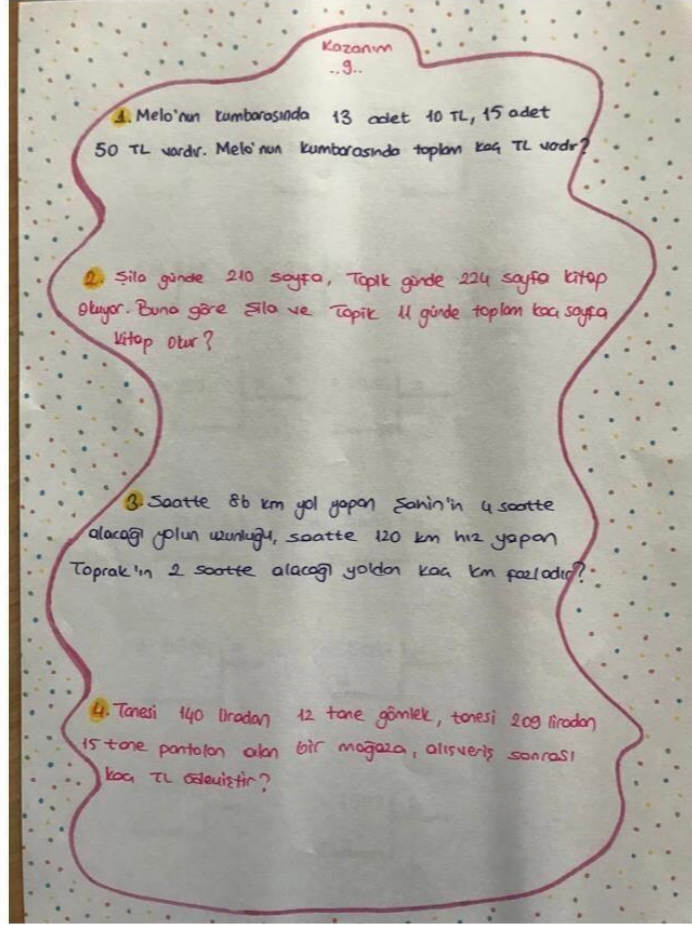 Kazanım
..9..
1. Melo'nun kumbarasında 13 adet 10 TL, 15 adet
50 TL vardır. Melo'nun kumbarasında toplam kaç TL vadır?
2. Şila günde 210 sayfa, Topik günde 224 sayfa kitap
okuyor. Buna göre Şila ve Topik 11 günde toplam kaç sayfa
kitap okur?
3. Saatte 86 km yol yapan Şahin'in 4 saatte
alacağı yolun uzunluğu, saatte 120 km hız yapan
Toprak'ın 2 saatte alacağı yoldan kaç km fazladır?
4. Tanesi 140 liradan 12 tane gömlek, tanesi 209 liradan
15 tane pantolon alan bir mağaza, alışveriş sonrası
kaç TL ödemiştir?